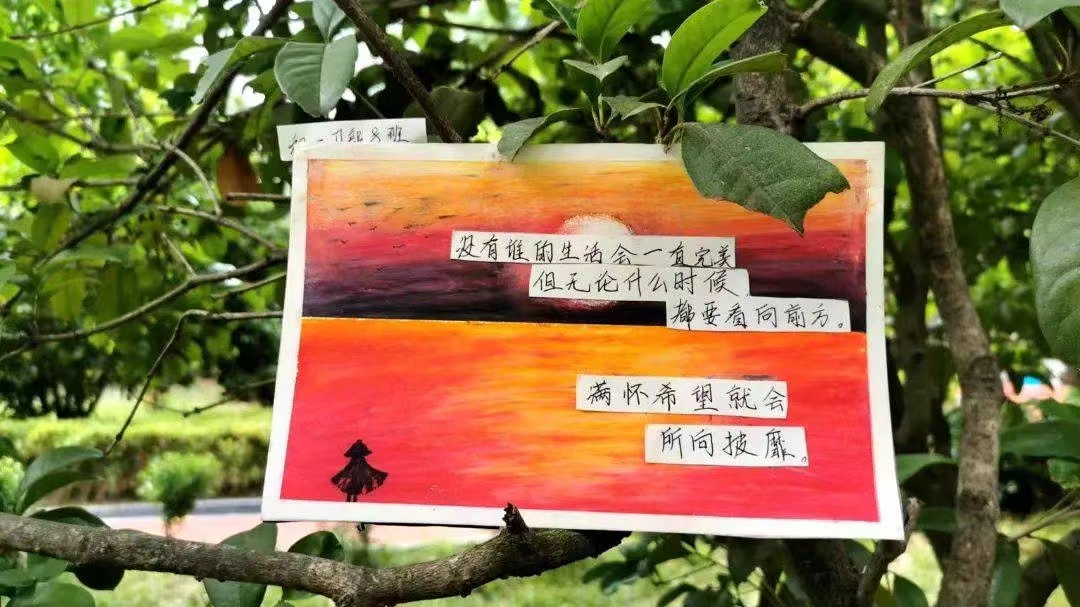 没有谁的生活会一直完美
但无论什么时候
都要看向前方。
满怀希望就会
所向披靡。